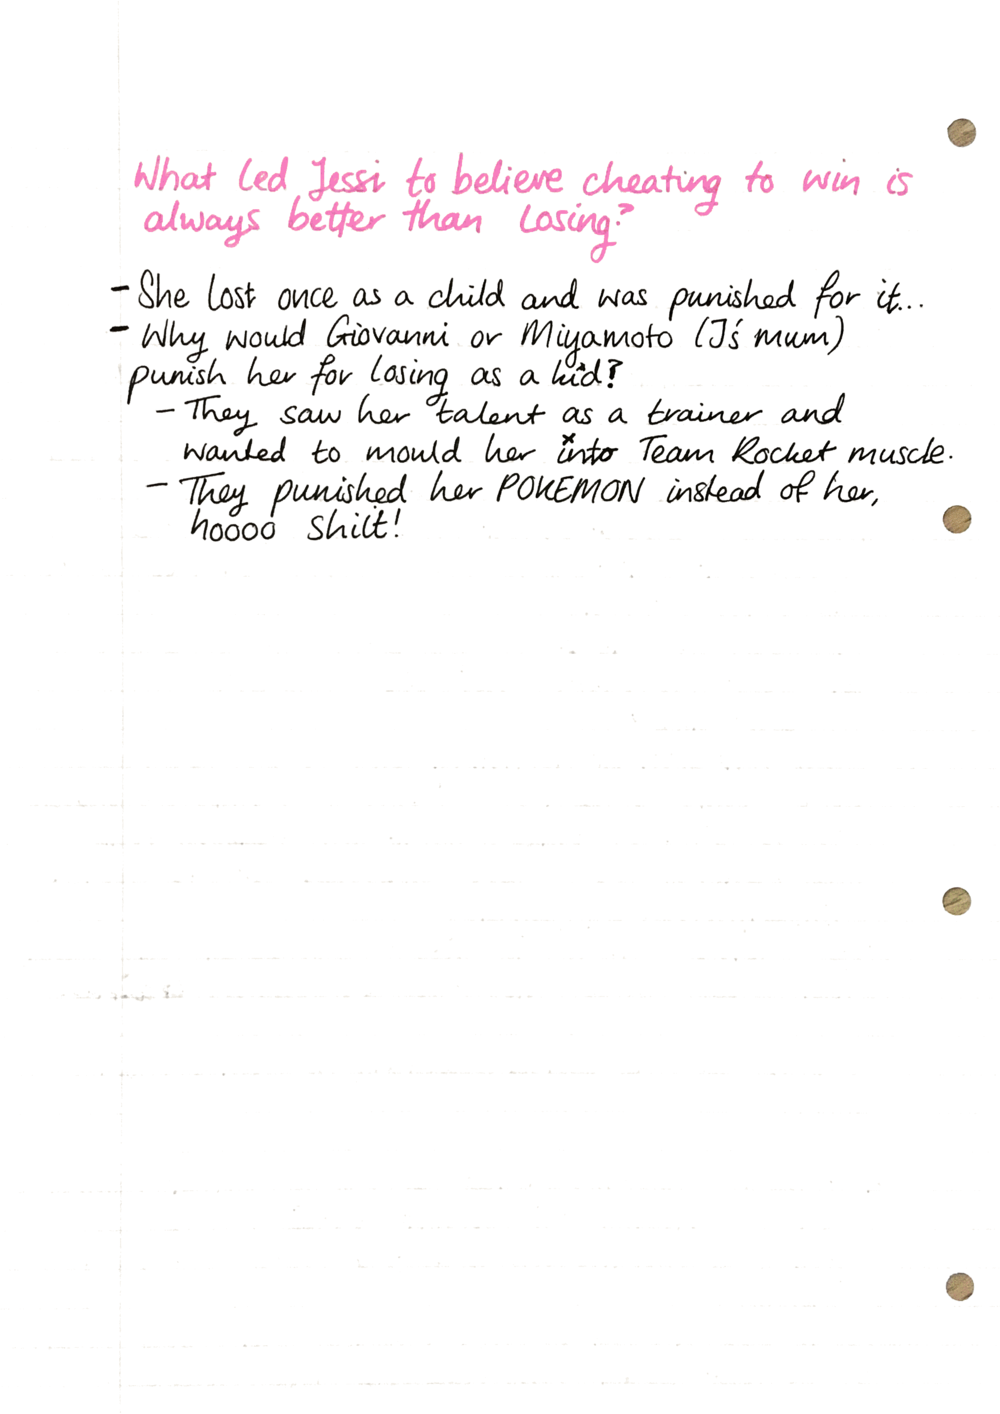 What led Jessi to believe cheating to win is
always better than losing?
- She lost once as a child and was punished for it...
- Why would Giovanni or Miyamoto (J's mum)
punish her for losing as a kid?
- They saw her talent as a trainer and
wanted to mould her into Team Rocket muscle.
- They punished her POKEMON instead of her,
hoooo shilt!